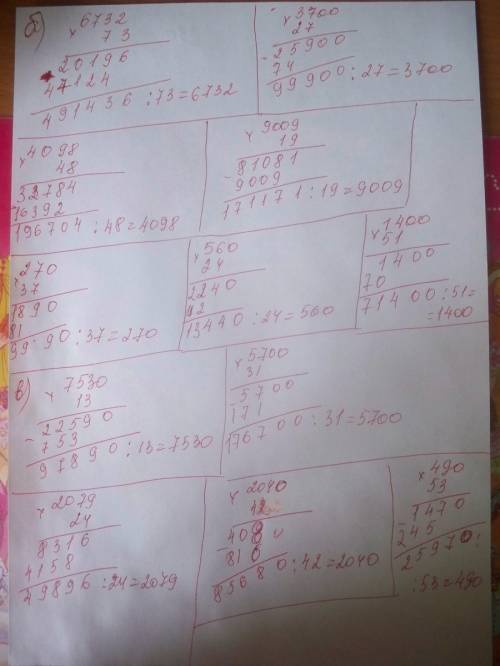 б)
× 6732
73
20196
47124
491436 : 73 = 6732
× 3700
27
25900
74
99900 : 27 = 3700
× 4098
48
32784
16392
196704 : 48 = 4098
× 9009
19
81081
9009
171171 : 19 = 9009
× 270
37
1890
81
99 90 : 37 = 270
× 560
24
2240
92
13440 : 24 = 560
× 1400
51
1400
70
71400 : 51 =
= 1400
в)
× 7530
13
22590
753
97890 : 13 = 7530
× 5700
31
5700
171
176700 : 31 = 5700
× 2079
24
8316
4158
49896 : 24 = 2079
× 2040
42
4080
816
85680 : 42 = 2040
× 490
53
1470
245
25970 :
: 53 = 490